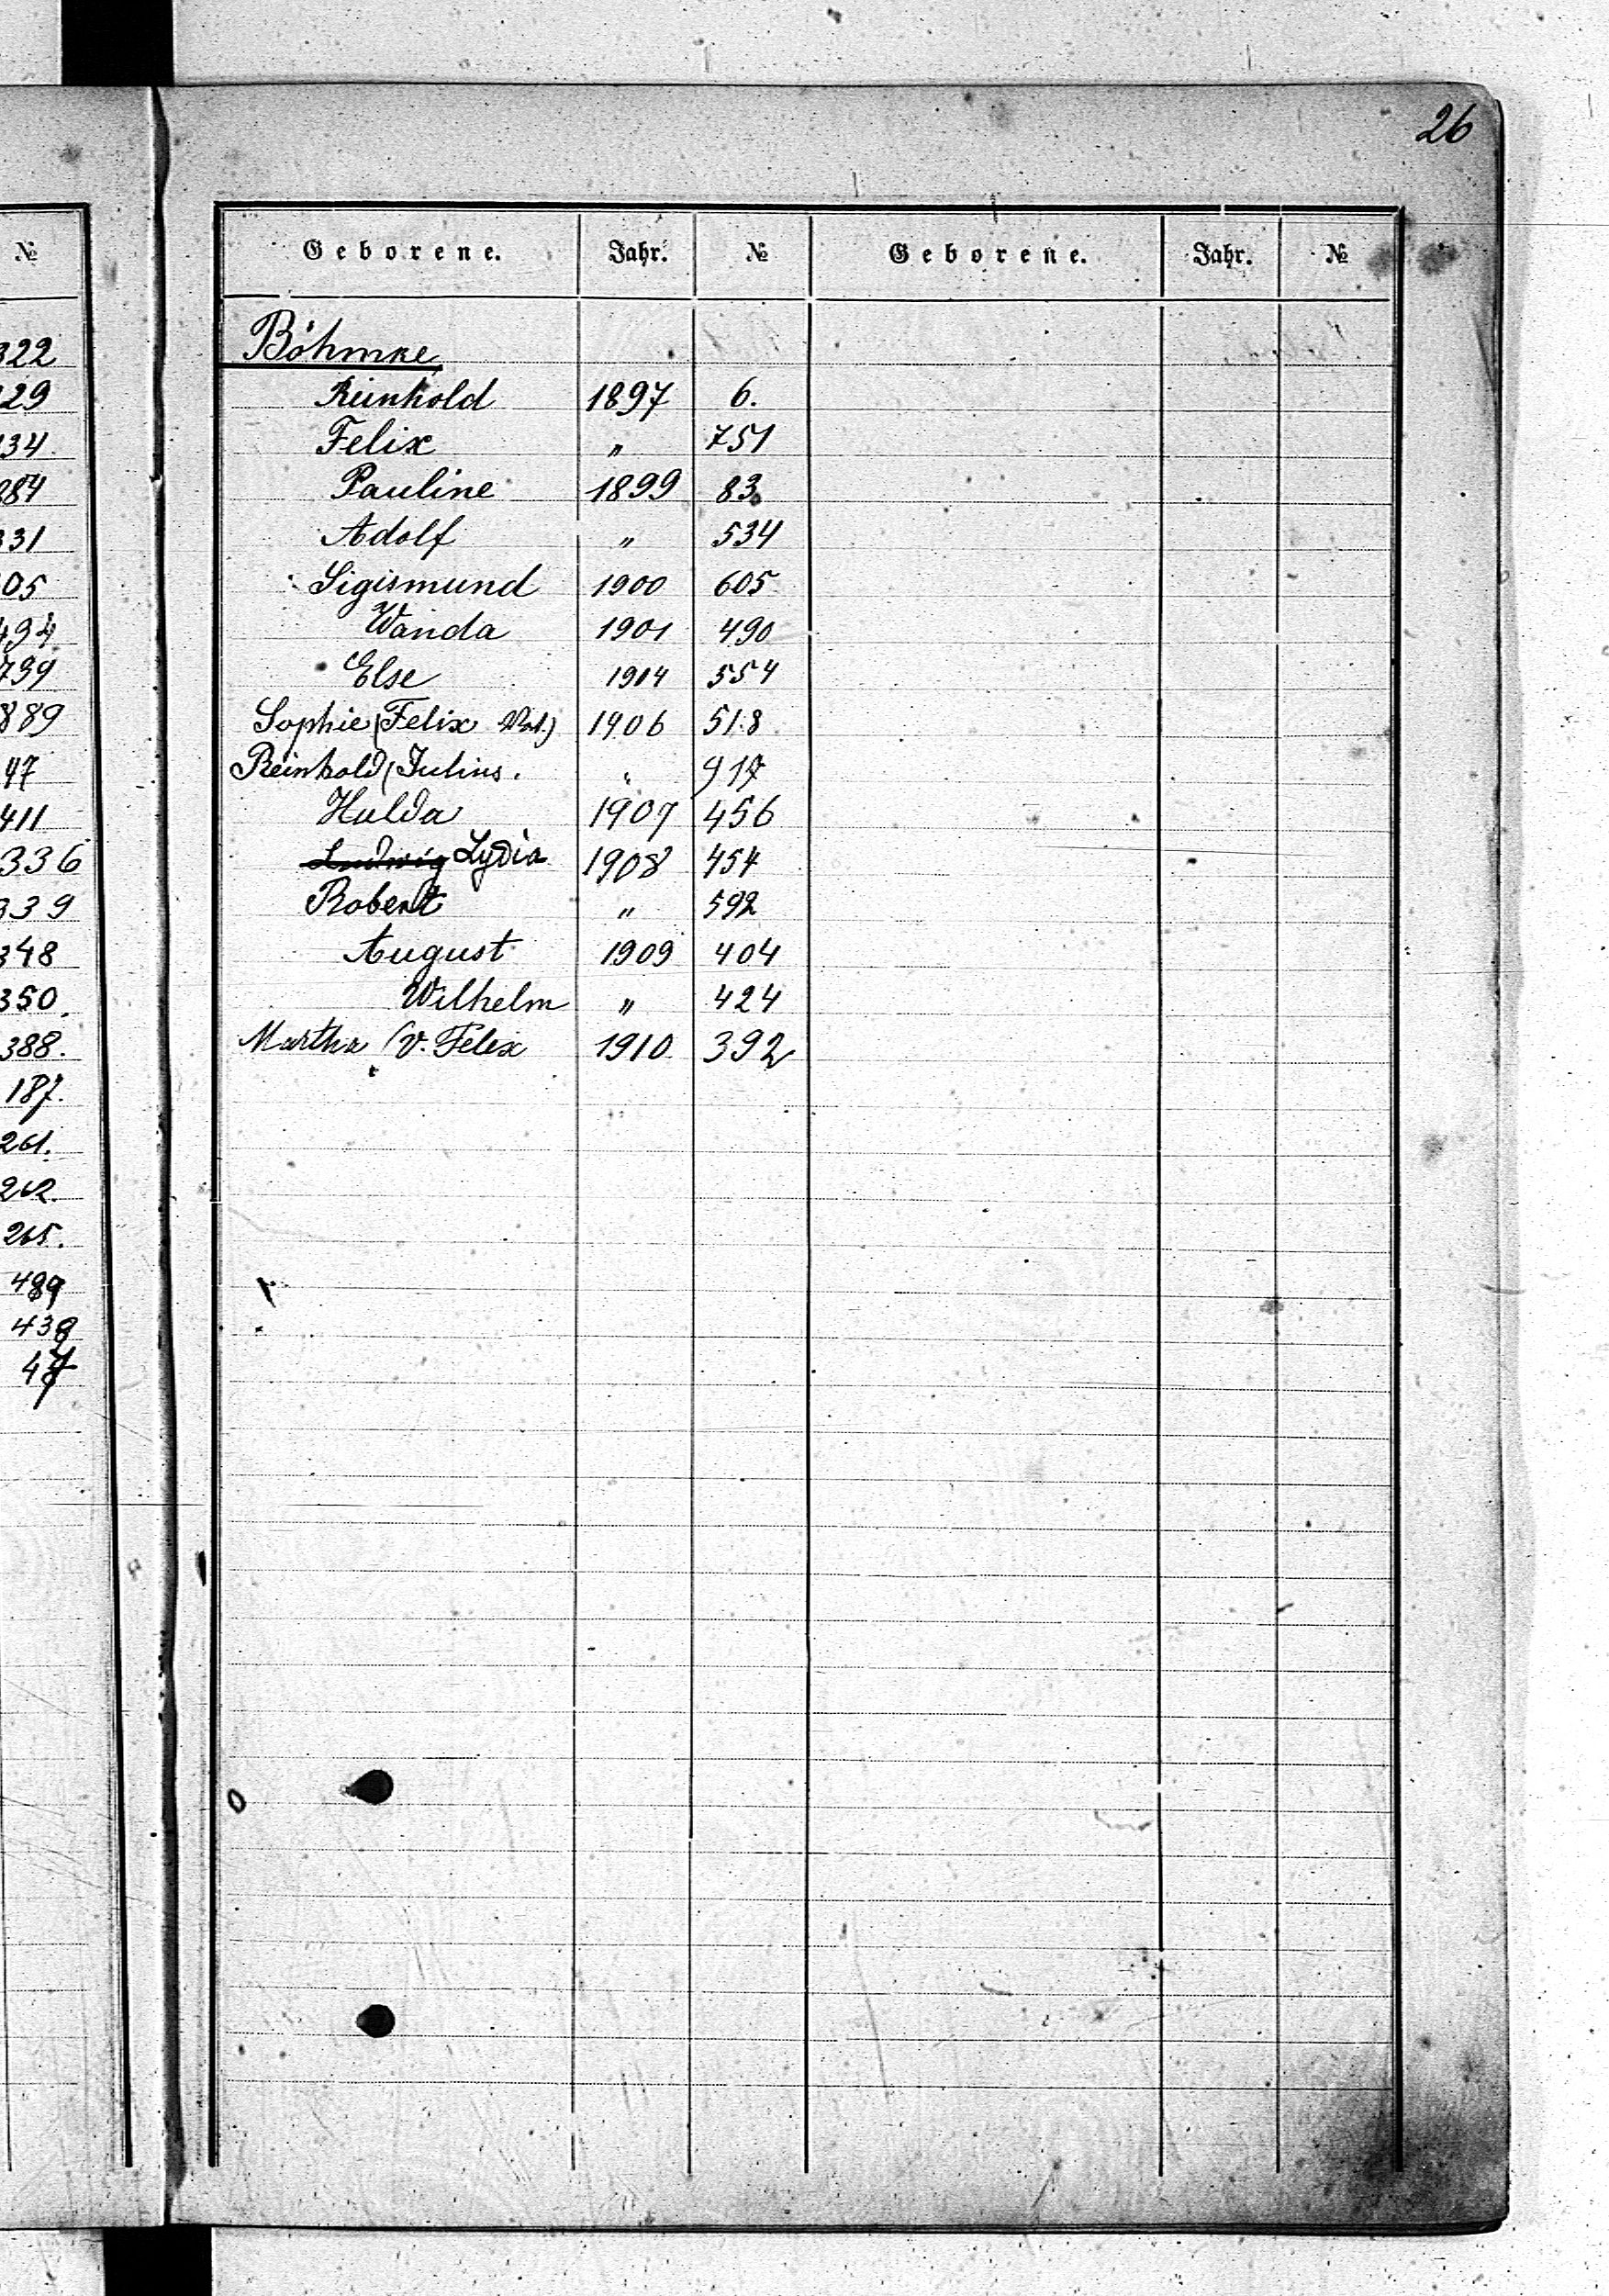 26
№
322
29
34.
384
331
05
494
739
889
47
411
336
339
348
350.
388.
187.
261.
262.
265.
489
Geborene. Jahr. № Geborene. Jahr. №
Böhmke
Reinhold 1897 6.
Felix " 751
Pauline 1899 83
Adolf " 534
Sigismund 1900 605
Wanda 1901 490
Else 1904 554
Sophie (Felix Vat.) 1906 518
Reinhold (Julius. " 917
Hulda 1907 456
Ludwig Lydia 1908 454
Robert " 592
August 1909 404
Wilhelm " 424
Martha (V. Felix 1910 392